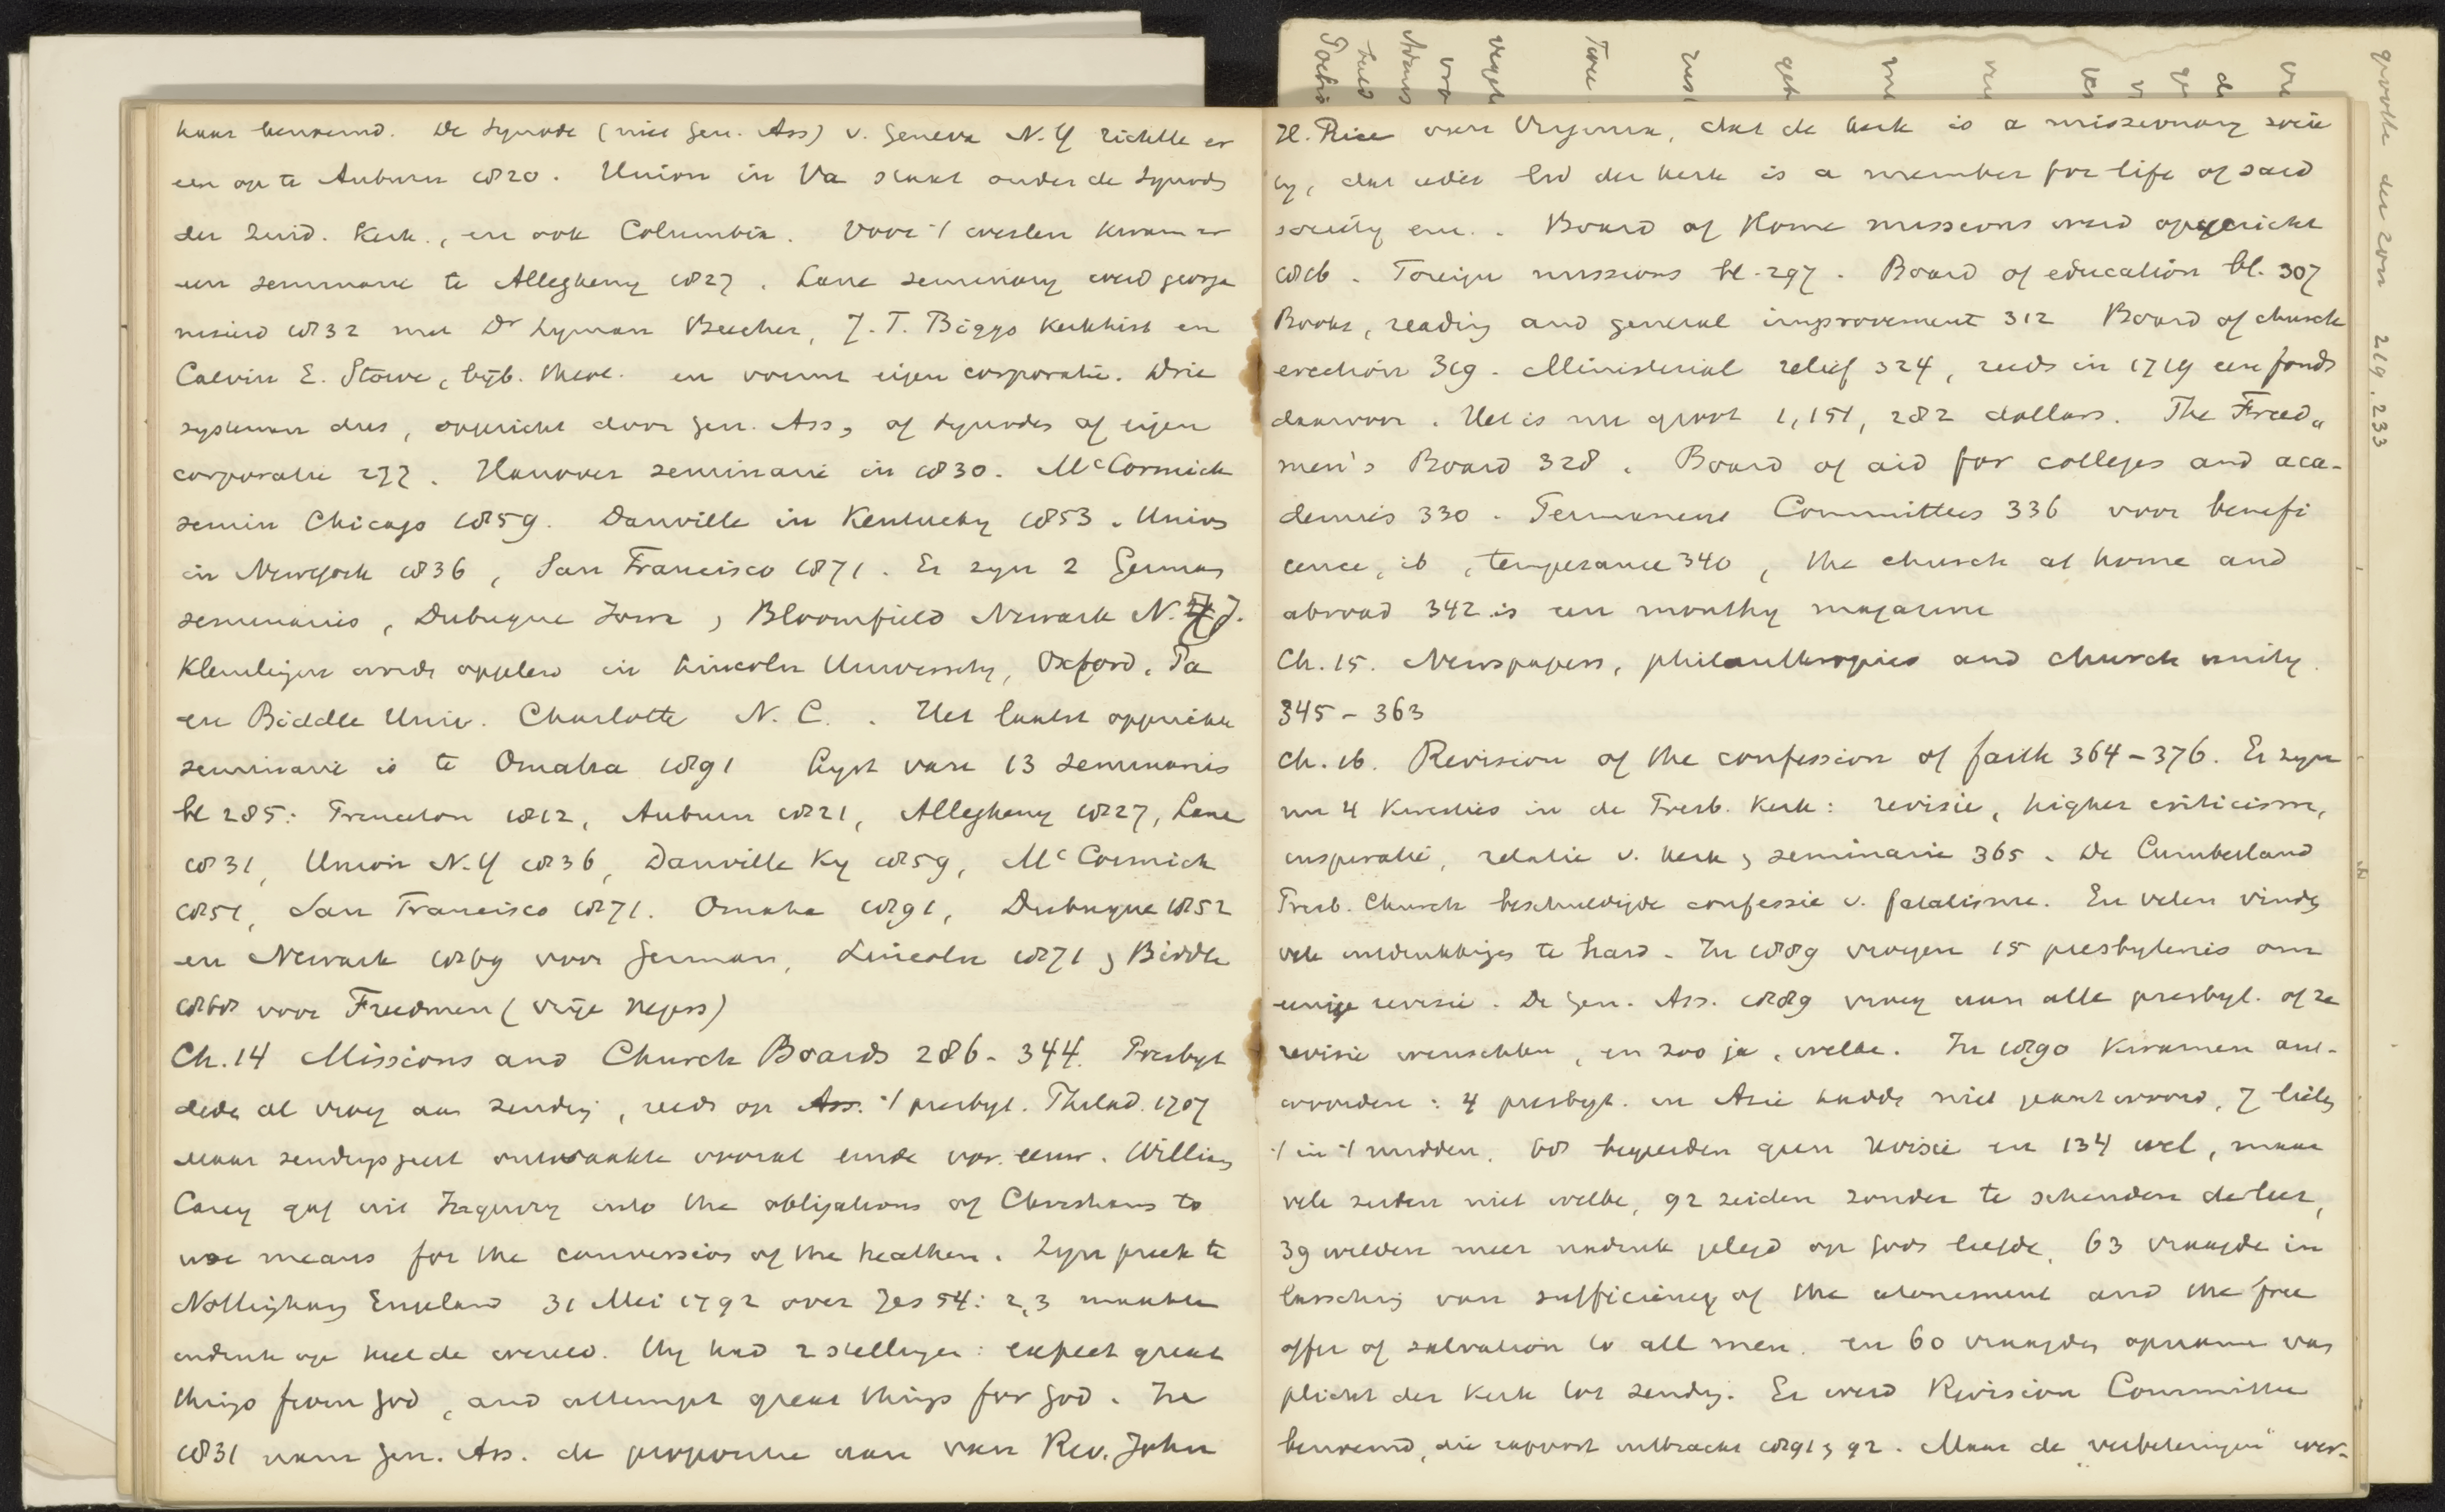 haar benoemd. De Synode (niet Gen. Ass) v. Geneva N.Y richtte er
een op te Auburn 1820. Union in Va staat onder de Synode
der Zuid. Kerk., en ook Columbia. Voor 't westen kwam er
een seminarie te Allegheny 1827. Lane seminary werd georga
niseerd 1832 met Dr Lyman Beecher, J.T. Biggs kerkhist en
Calvin E. Stowe, bijb. theol. en vormt eigen corporatie. Drie
systemen dus, opgericht door Gen. Ass, of Synodes of eigen
corporatie 277. Hanover seminarie in 1830. McCormick
semin Chicago 1859. Danville in Kentucky 1853. Union
in Newyork 1836, San Francisco 1871. Er zyn 2 German
seminaries, Dubuque Iowa, Bloomfield Newark N. J.
Kleurlingen worden opgeleid in Lincoln University, Oxford, Pa
en Biddle Univ. Charlotte N. C. . Het laatst opgerichte
seminarie is te Omaha 1891 Lyst van 13 seminaries
bl 285: Princeton 1812, Auburn 1821, Allegheny 1827, Lane
1831, Union N.Y 1836, Danville Ky 1859, McCormick
1851, San Francisco 1871. Omaha 1891, Dubuque 1852
en Newark 1869 voor German, Lincoln 1871 & Biddle
1868 voor Freedmen (vrije negers)
Ch. 14 Missions and Church Boards 286-344. Presbyt
deden al vroeg aan zending, reeds op Ass. 't presbyt. Philad. 1707
maar zendingsgeest ontwaakte vooral einde vor. eeuw. William
Carey gaf uit Inquiry into the obligations of Christians to
use means for the conversion of the heathen. Zyn preek te
Nottingham England 31 Mei 1792 over Jes 54: 2,3 maakte
indruk op heel de wereld. Hy had 2 stellingen: expect great
things from God, and attempt great things for God. In
1831 nam Gen. Ass. de propositie aan van Rev. John
H. Rice van Virginia, dat de kerk is a missionary socie
ty, dat ieder lid der kerk is a member for life of said
society enz. . Board of Home missions werd opgericht
1816. Foreign missions bl. 297. Board of education bl. 307
Books, reading and general improvement 312 Board of church
erection 319. Ministerial relief 324, reeds in 1719 een fonds
daarvoor. Het is nu groot 1,151,282 dollars. The Freed„
men's Board 328. Board of aid for colleges and aca-
demies 330. Permanent Committees 336 voor benefi
cence, ib, temperance 340, the church at home and
abroad 342 is een monthly magazine
Ch. 15. Newspapers, philanthropies and church unity.
345-363
Ch. 16. Revision of the confession of faith 364-376. Er zyn
nu 4 kwesties in de Presb. Kerk: revisie, higher criticism,
inspiratie, relatie v. kerk & seminarie 365. De Cumberland
Presb. Church beschuldigde confessie v. fatalisme. En velen vinden
vele uitdrukkingen te hard. In 1889 vroegen 15 presbyteries om
eenige revisie. De Gen. Ass. 1889 vroeg aan alle presbyt. of ze
revisie wenschten, en zoo ja, welke. In 1890 kwamen ant-
woorden: 4 presbyt. in Azie hadden niet geantwoord, 7 lieten
't in 't midden, 68 begeerden geen revisie en 134 wel, maar
vele zeiden niet welke, 92 zeiden zonder te schenden de leer,
39 wilden meer nadruk gelegd op Gods liefde, 63 vraagden in
lassching van sufficiency of the atonement and the free
offer of salvation to all men. en 60 vraagden opname van
plicht der kerk tot zending. Er werd Revision Committee
benoemd, die rapport uitbracht 1891 & 92. Maar de „verbeteringen" wer-
grootte der zon 219, 233